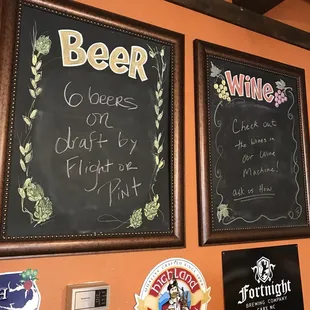 Beer
6 beers
on
draft by
Flight or
Pint
Wine
Check out
the wines in
our Wine
Machine!
ask us How
HIGHLAND
Fortnight
BREWING COMPANY
CARY NC